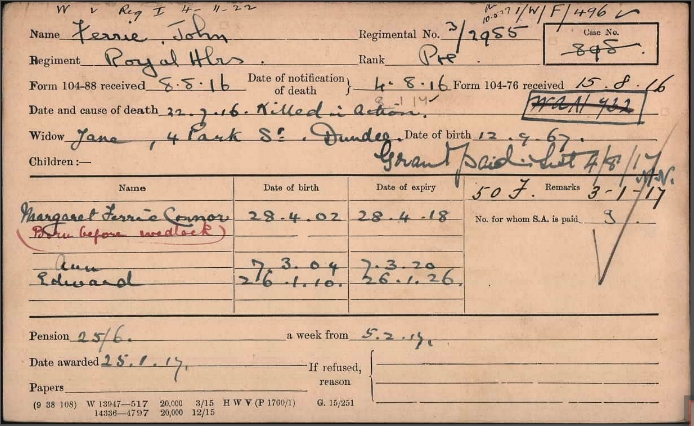 W v Reg I 4-11-22 /W/F/496
Name Ferrie, John Regimental No. 3/2955 Case No.
Regiment Royal Hrs. Rank Pte 898
Form 104-88 received 8.8.16 Date of notification of death } 4.8.16 Form 104-76 received 15.8.16
Date and cause of death 22.7.16. Killed in action.
Widow Jane, 4 Park St. Dundee. Date of birth 12.9.67.
Children:— Grant paid 4/8/17
Name Date of birth Date of expiry 50 F. Remarks 3-1-17
Margaret Ferrie Connor 28.4.02 28.4.18 No. for whom S.A. is paid 3
(Born before wedlock)
Ann 7.3.04 7.3.20
Edward 26.1.10. 26.1.26.
Pension 25/6. a week from 5.2.17.
Date awarded 25.1.17. If refused, reason
Papers
(9 38 108) W 13947—517 20,000 3/15 H W V (P 1760/1) G. 15/251
14336—4797 20,000 12/15